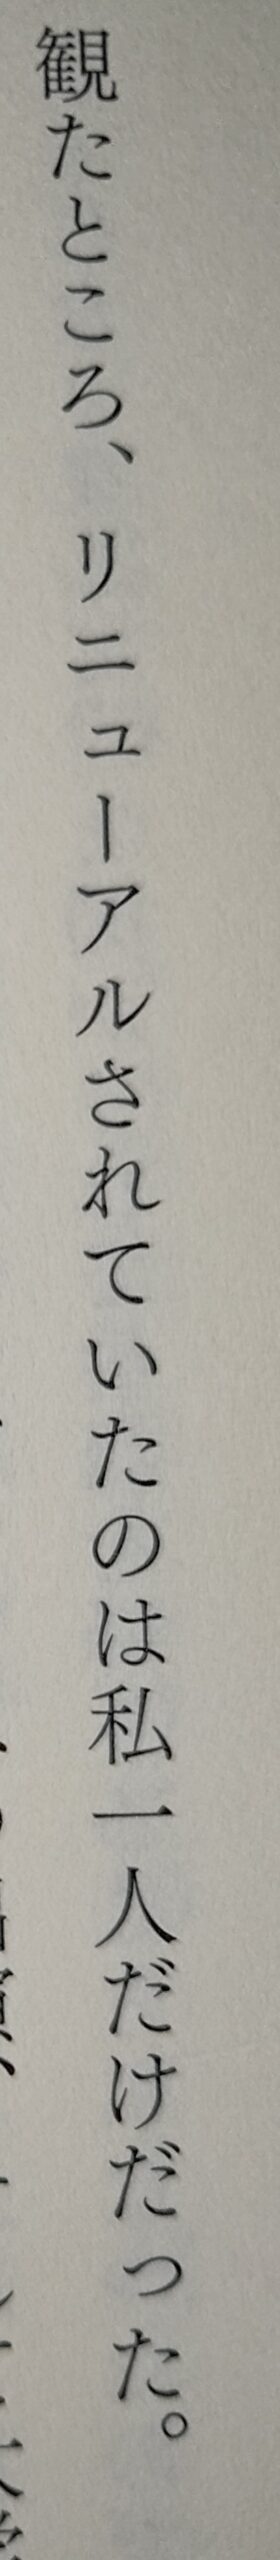 観たところ、リニューアルされていたのは私一人だけだった。